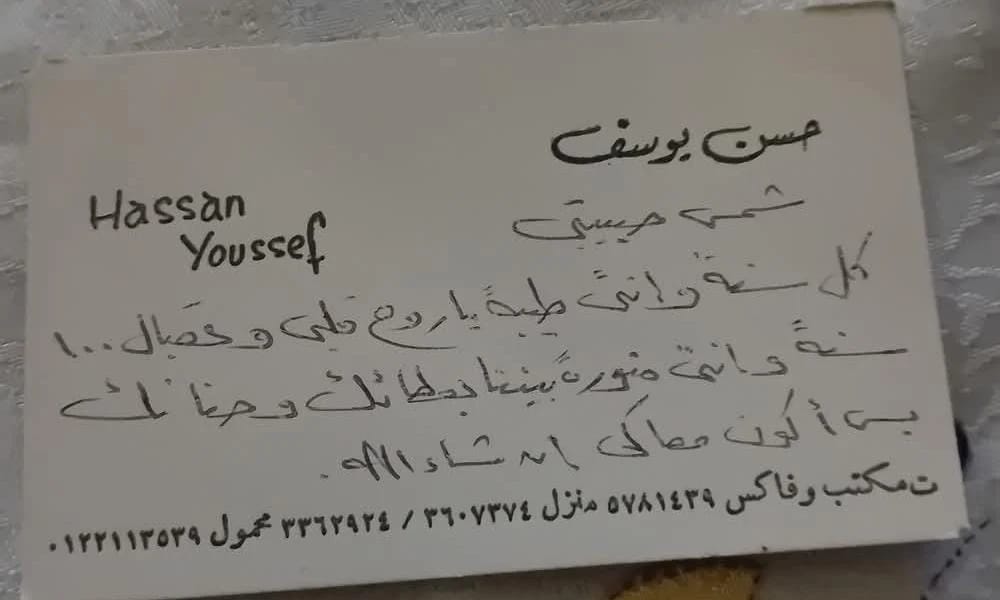 حسن يوسف
Hassan
Youssef
شمس حبيبتى
كل سنة وانتى طيبة يا روح قلبى وعقبال ١٠٠
سنة وانتى منورة بيننا بعطائك وحنانك
بس أكون معاكى ان شاء الله.
ت مكتب وفاكس ٥٧٨١٤٣٩ منزل ٣٦٠٧٣٧٤ / ٣٣٦٢٩٢٤ محمول ٠١٢٢١١٣٥٣٩